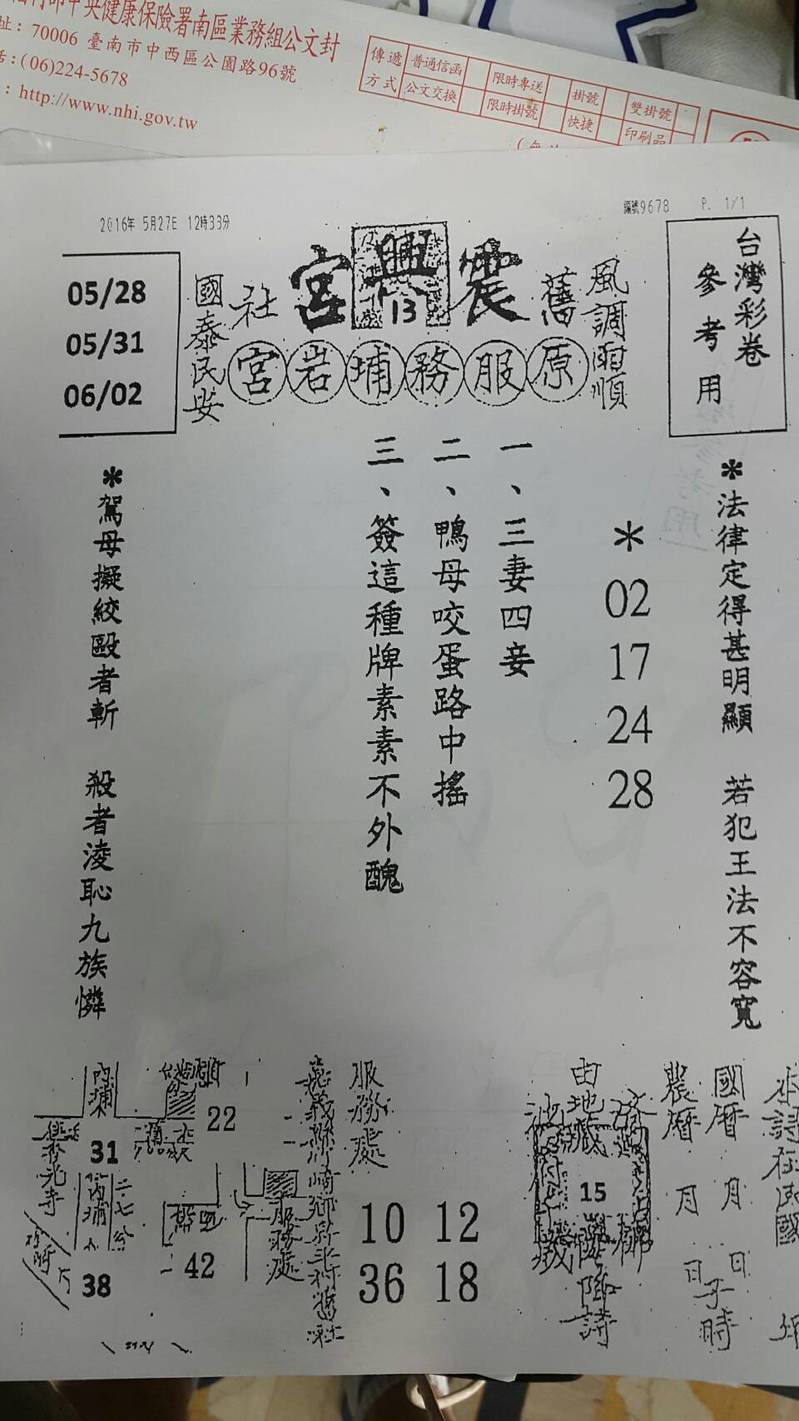 中央健康保險署南區業務組公文封
70006 臺南市中西區公園路96號
(06)224-5678
http://www.nhi.gov.tw
傳遞方式
普通信函
公文交換
限時專送
限時掛號
掛號
快捷
雙掛號
印刷品
2016年 5月27日 12時33分
編號9678 P. 1/1
台灣彩卷
參考用
風調雨順
舊
震興宮
13
社
國泰民安
原服務埔岩宮
05/28
05/31
06/02
*法律定得甚明顯 若犯王法不容寬
*
02
17
24
28
一、三妻四妾
二、鴨母咬蛋路中搖
三、簽這種牌素素不外醜
*駕母擬絞毆者斬 殺者淩恥九族憐
本詩在民國 年
國曆 月 日
農曆 月 日子時
由地藏
15
降詩
服務處
12
18
10
36
服務處
22
42
31
38